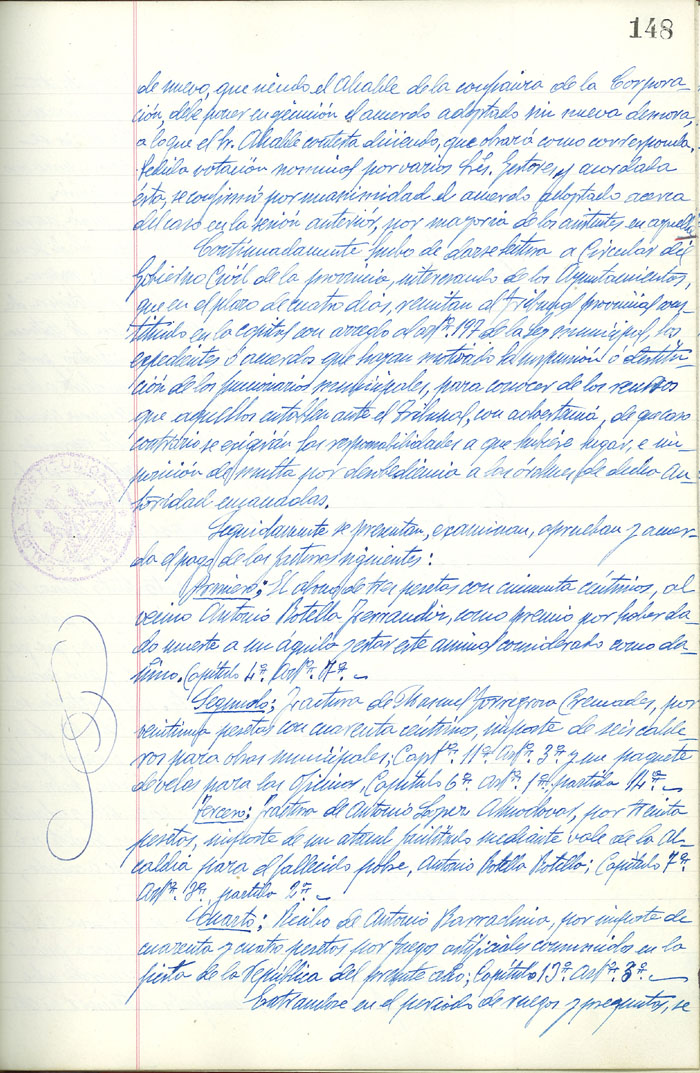 148
de nuevo, que siendo el Alcalde de la confianza de la Corpora-
ción, debe poner en ejecución el acuerdo adoptado sin nueva demora,
a lo que el Sr. Alcalde contesta diciendo, que obrará como corresponda.
Pedida votación nominal por varios Srs. Gestores, y acordada
ésta, se confirmó por unanimidad el acuerdo adoptado acerca
del caso en la sesión anterior, por mayoría de los asistentes en aquella.
Continuadamente hubo de darse lectura a Circular del
Gobierno Civil de la provincia, interesando de los Ayuntamientos,
que en el plazo de cuatro días, remitan al Tribunal provincial cons-
tituido en la capital con arreglo al artº. 197 de la Ley municipal, los
expedientes o acuerdos que hayan motivado la suspensión o destitu-
ción de los funcionarios municipales, para conocer de los recursos
que aquellos entablen ante el Tribunal, con advertencia, de que caso
contrario se exigirán las responsabilidades a que hubiere lugar, e im-
posición de multa por desobediencia a las órdenes de dicha Au-
toridad emanadas.
Seguidamente se presentan, examinan, aprueban y acuer-
da el pago de las facturas siguientes:
Primero; El abono de tres pesetas con cincuenta céntimos, al
vecino Antonio Botella Ferrandiz, como premio por haber da-
do muerte a un águila y estar este animal considerado como da-
ñino. Capítulo 4º Artº. 7º.
Segundo; Factura de Manuel Torregrosa Cremades, por
veintiuna pesetas con cuarenta céntimos, importe de seis calde-
ros para obras municipales; Capº. 11º Artº. 3º y un paquete
de velas para las Oficinas, Capítulo 6º Artº. 1º partida 14º
Tercero; Factura de Antonio Lopez Almodovar, por treinta
pesetas, importe de un ataud facilitado mediante vale de la Al-
caldía para el fallecido pobre, Antonio Botella Botella; Capítulo 7º
Artº. 3º, partida 2º
Cuarto; Recibo de Antonio Barrachina, por importe de
cuarenta y cuatro pesetas por fuegos artificiales consumidos en la
fiesta de la República del presente año; Capítulo 13º Artº. 3º
Entrandose en el período de ruegos y preguntas, se